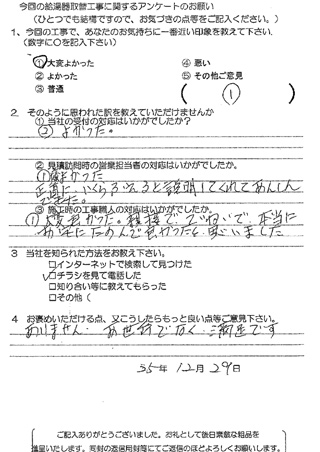 今回の給湯器取替工事に関するアンケートのお願い
(ひとつでも結構ですので、お気づきの点等をご記入ください。)
1、今回の工事で、あなたのお気持ちに一番近い印象を教えて下さい.
(数字に○を記入下さい)
①大変よかった ④悪い
②よかった ⑤その他ご意見
③普通 ( 1 )
2. そのように思われた訳を教えていただけませんか
①当社の受付の対応はいかがでしたか?
② よかった。
②見積訪問時の営業担当者の対応はいかがでしたか。
正直に、いくらぐらいると説明してくれてあんしん
できた。
③施工時の工事職人の対応はいかがでしたか。
(1)大変良かった。親接で、ていねいで、本当に
たのんで良かったと思いました
3 当社を知られた方法をお教え下さい。
□インターネットで検索して見つけた
□チラシを見て電話した
□知り合い等に教えてもらった
□その他(
4 お褒めいただける点、又こうしたらもっと良い点等ご意見下さい。
ありません. お世辞でなく、満足です
35年 12月 29日
ご記入ありがとうございました。お礼として後日素敵な粗品を
進呈いたします。同封の返信用封筒にてご返信のほどよろしくお願いします。